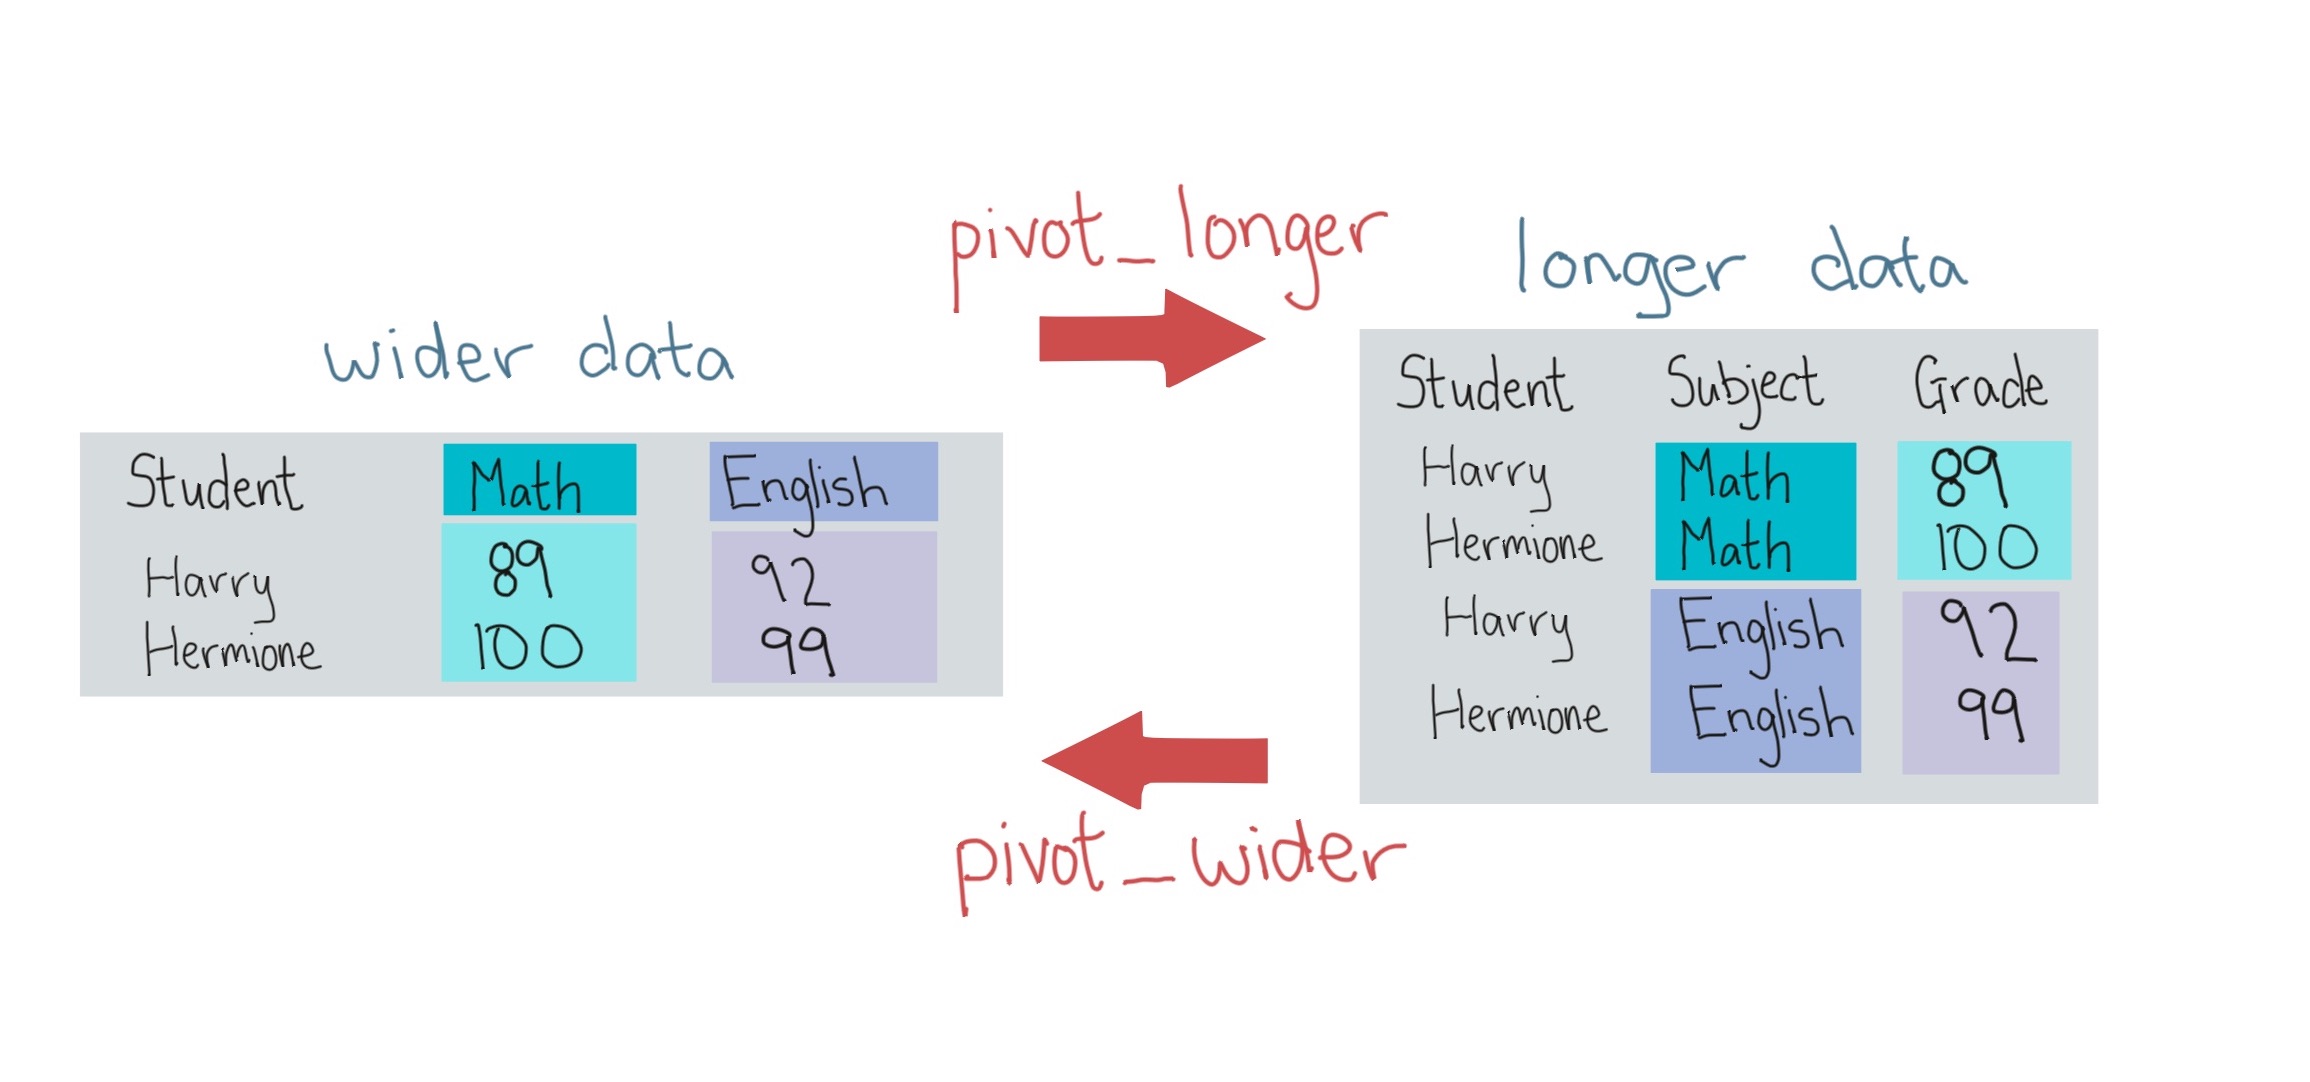 pivot_longer
wider data
Student Math English
Harry 89 92
Hermione 100 99
longer data
Student Subject Grade
Harry Math 89
Hermione Math 100
Harry English 92
Hermione English 99
pivot_wider